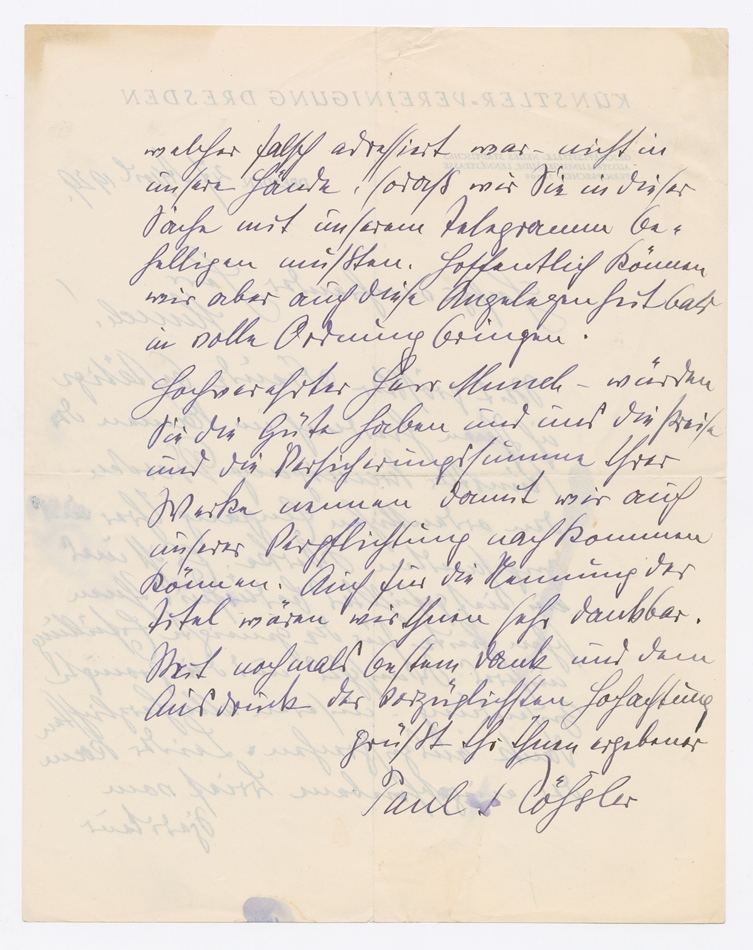 welcher falsch adressiert war – nicht in
unsere Hände, sodaß wir Sie in dieser
Sache mit unserem Telegramm be=
helligen mußten. Hoffentlich können
wir aber auch diese Angelegenheit bald
in volle Ordnung bringen.
Hochverehrter Herr Munch – würden
Sie die Güte haben und uns die Preise
und die Versicherungssumme Ihrer
Werke nennen damit wir auch
unserer Verpflichtung nachkommen
können. Auch für die Nennung der
Titel wären wir Ihnen sehr dankbar.
Mit nochmals bestem Dank und dem
Ausdruck der vorzüglichsten Hochachtung
grüßt Sie Ihnen ergebener
Paul Rößler
KÜNSTLER-VEREINIGUNG DRESDEN